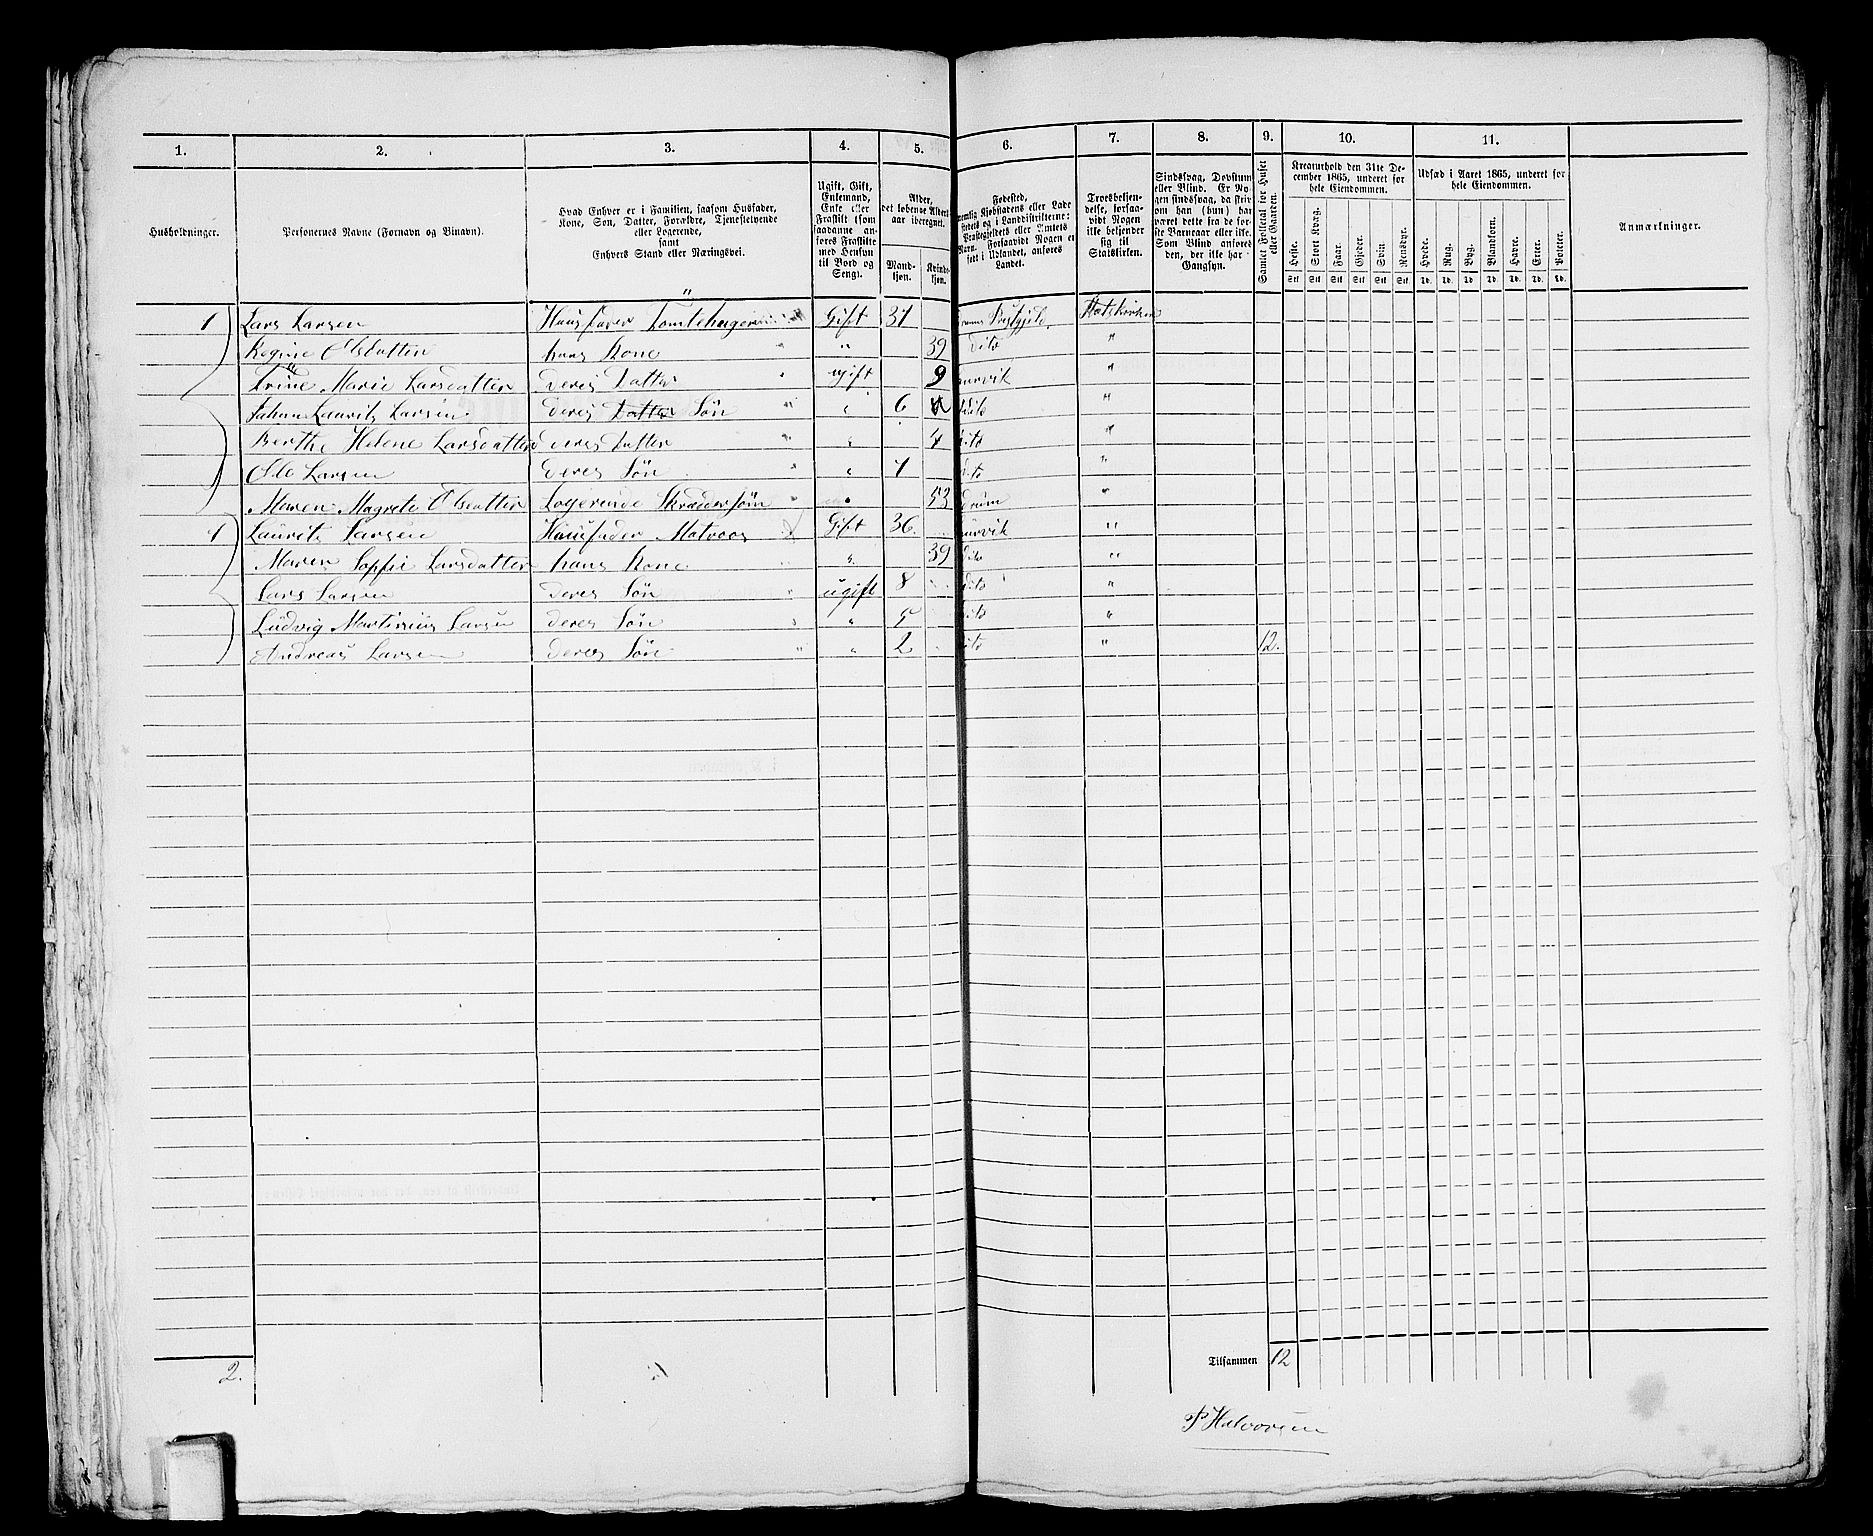 1. 2. 3. 4. 5. 6. 7. 8. 9. 10. 11.
Husholdninger.
Personernes Navne (Fornavn og Binavn).
Hvad Enhver er i Familien, saasom Husfader, Kone, Søn, Datter, Forældre, Tjenestetyende eller Logerende, samt Enhvers Stand eller Næringsvei.
Ugift, Gift, Enkemand, Enke eller Fraskilt (som saadanne anføres Fraskilte med Hensyn til Bord og Seng).
Alder, det løbende Alders aar iberegnet.
Mandkjøn. Kvindekjøn.
Fødested, nemlig Kjøbstadens eller Ladestedets og i Landdistrikterne: Præstegjeldets eller Amtets Navn. Forsaavidt Nogen er født i Udlandet, anføres Landet.
Troesbekjendelse, forsaavidt Nogen ikke bekjender sig til Statskirken.
Sindssvag, Døvstum eller Blind. Er Nogen sindssvag, da skriv om han (hun) har været dette fra de første Barneaar eller ikke. Som Blind anføres den, der ikke har Gangsyn.
Samlet Folketal for Huset eller Gaarden.
Kreaturhold den 31te December 1865, underet for hele Eiendommen.
Heste. Stort Kvæg. Faar. Gjeder. Svin. Rensdyr.
Stk Stk Stk Stk Stk Stk
Udsæd i Aaret 1865, underet for hele Eiendommen.
Hvede. Rug. Byg. Blandkorn. Havre. Erter. Poteter.
Td. Td. Td. Td. Td. Td. Td.
Anmærkninger.
1 Lars Larsen Huusfader Tomtehuger Gift 31 Præstgjeld Statskirken
Regine Olsdatter hans Kone " 39 dito "
Trine Marie Larsdatter deres Datter ugift 9 "
Johan Lauritz Larsen deres Datter Søn " 6 dito "
Berthe Helene Larsdatter deres Datter " 4 dito "
Ole Larsen deres Søn " 1 dito "
Maren Magrete Olsdatter Logerende 53 "
1 Lauritz Larsen Huusfader Matroos Gift 36 "
Maren Sophie Larsdatter hans Kone " 39 dito "
Lars Larsen deres Søn ugift 8 dito "
Ludvig Martinius Larsen deres Søn " 5 dito "
Andreas Larsen deres Søn " 2 dito " 12.
2. Tilsammen 12
P Halvorsen